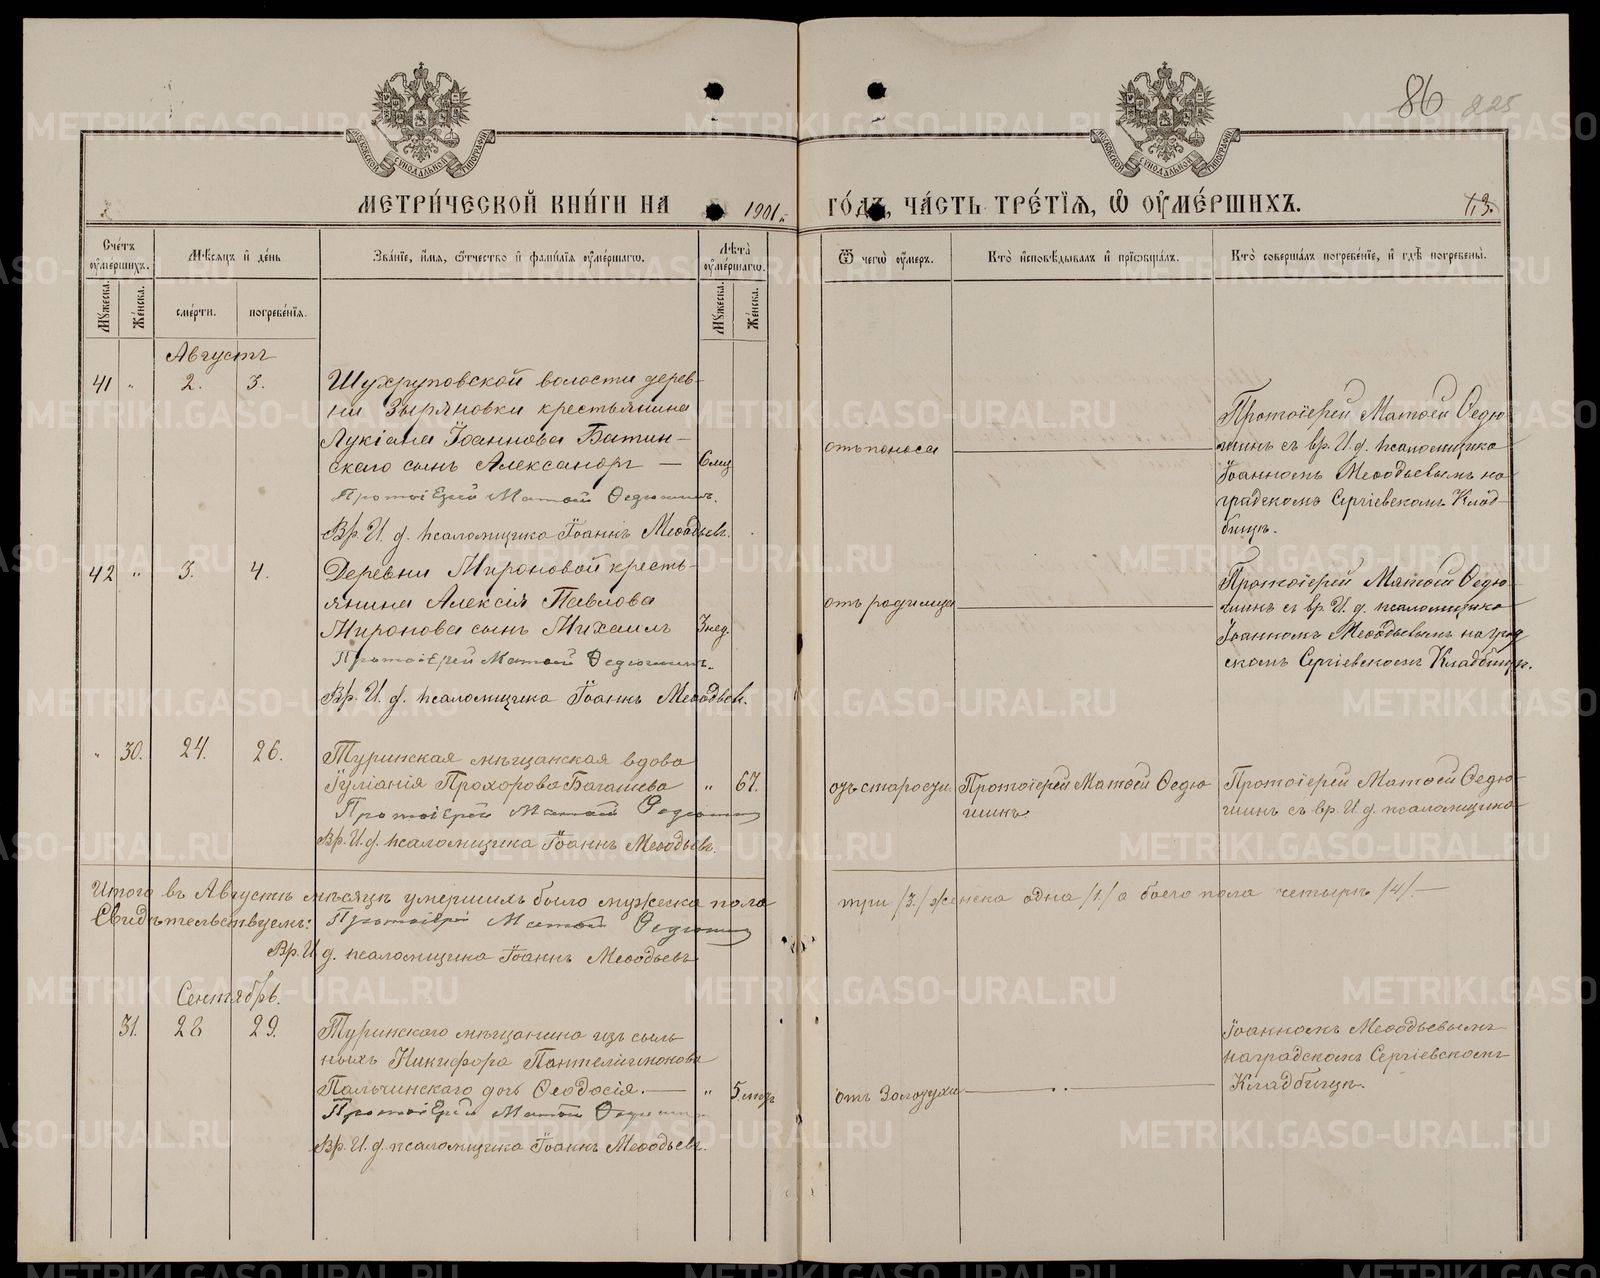 86 225
МЕТРИ́ЧЕСКОЙ КНИ́ГИ НА 1901 г.
ГО́ДЪ, ЧА́СТЬ ТРЕ́ТІѦ, Ѡ ОУМЕ́РШИХЪ.
113.
Сче́тъ оуме́ршихъ.
Мꙋ́жеска.
Же́нска.
Мѣ́сяцъ и де́нь
сме́рти.
погребе́нїѧ.
Зва́нїе, и́мѧ, ѻ́тчество и фами́лїѧ оуме́ршагѡ.
Лѣ́та оуме́ршагѡ.
Мꙋ́жеска.
Же́нска.
Ѿ чегѡ̀ оу́меръ.
Кто̀ и́сповѣ́дывалъ и прїѡбща́лъ.
Кто̀ соверша́лъ погребе́нїе, и гдѣ̀ погребены̀.
Августъ
41 " 2. 3.
Шухруповской волости дерев-
ни Зыряновки крестьянина
Лукіана Іоаннова Батин-
скаго сынъ Александръ — 6 мц
Протоіерей Матѳей Ѳедюшинъ.
Вр. И. д. псаломщика Іоаннъ Меѳодьевъ.
отъ поноса
Протоіерей Матѳей Ѳедю-
шинъ съ вр. И. д. псаломщика
Іоанномъ Меѳодьевымъ на
градскомъ Сергіевскомъ Клад-
бищѣ.
42 " 3. 4.
Деревни Мироновой кресть-
янина Алексія Павлова
Миронова сынъ Михаилъ 3 нед.
Протоіерей Матѳей Ѳедюшинъ.
Вр. И. д. псаломщика Іоаннъ Меѳодьевъ.
отъ родимца
Протоіерей Матѳей Ѳедю-
шинъ съ вр. И. д. псаломщика
Іоанномъ Меѳодьевымъ на град
скомъ Сергіевскомъ Кладбищѣ.
" 30. 24. 26.
Туринская мѣщанская вдова
Іуліанія Прохорова Багашева " 67.
Протоіерей Матѳей Ѳедюшинъ
Вр. И. д. псаломщика Іоаннъ Меѳодьевъ.
отъ старости
Протоіерей Матѳей Ѳедю
шинъ.
Протоіерей Матѳей Ѳедю-
шинъ съ вр. И. д. псаломщика
Итого въ Августѣ мѣсяцѣ умершихъ было мужеска пола
три /3/ женска одна /1/ а обоего пола четыре /4/. —
Свидѣтельствуемъ: Протоіерей Матѳей Ѳедюшинъ
Вр. И д. псаломщика Іоаннъ Меѳодьевъ
Сентябрь.
31. 28 29.
Туринскаго мѣщанина изъ ссыль
ныхъ Никифора Пантелиимонова
Пальчинскаго дочь Ѳеодосія. — " 5 мцъ
Протоіерей Матѳей Ѳедюшинъ
Вр. И. д. псаломщика Іоаннъ Меѳодьевъ.
отъ Золотухи
Іоанномъ Меѳодьевымъ
на градскомъ Сергіевскомъ
Кладбищѣ.
METRIKI.GASO-URAL.RU